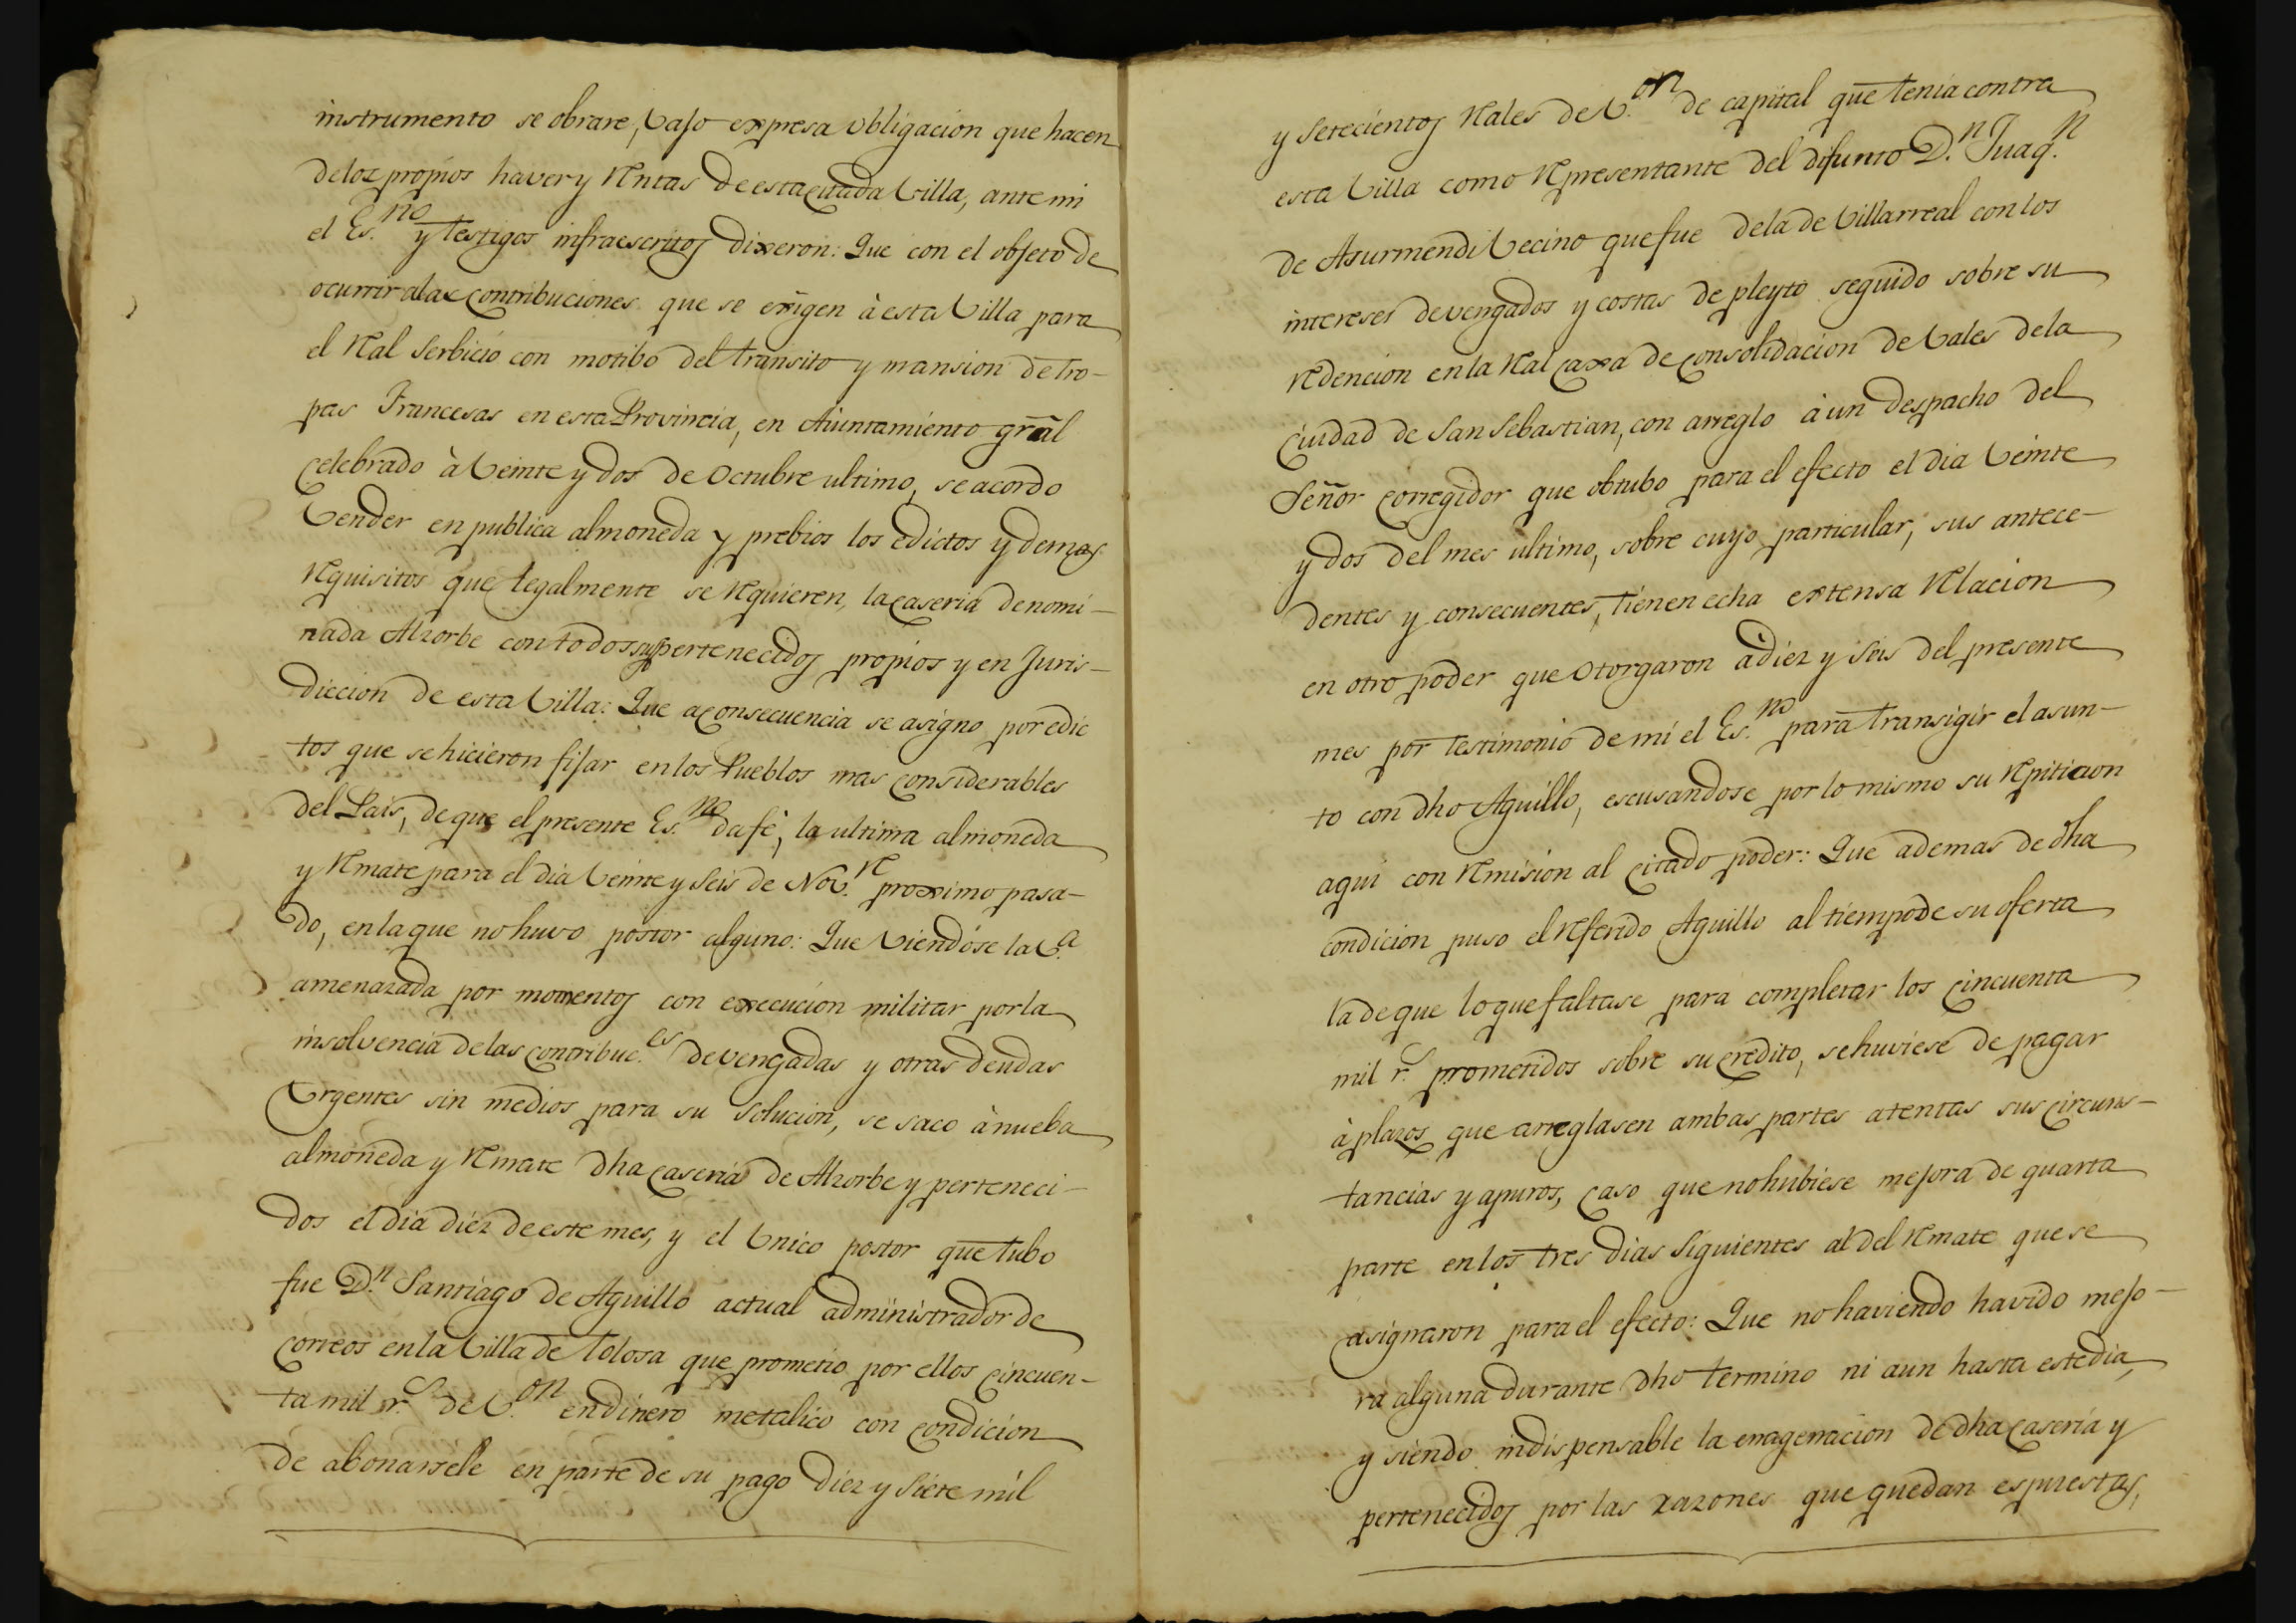 instrumento se obrare, vajo expresa obligacion que hacen
de los propios haver y Rentas de esta citada Villa, ante mi
el Es.no y testigos infraescritos dixeron: Que con el objeto de
ocurrir a las contribuciones que se exigen à esta Villa para
el Real Serbicio con motibo del transito y mansion de tro-
pas Francesas en esta Provincia, en Aiuntamiento gral
celebrado à Veinte y dos de Octubre ultimo, se acordo
Vender en publica almoneda y prebios los edictos y demas
Requisitos que legalmente se Requieren, la caseria denomi-
nada Alzorbe con todos sus pertenecidos propios y en Juris-
diccion de esta Villa: Que a consecuencia se asigno por edic
tos que se hicieron fijar en los Pueblos mas considerables
del Pais, de que el presente Es.no da fé, la ultima almoneda
y Remate para el dia Veinte y Seis de Nov.e proximo pasa-
do, en la que no huvo postor alguno: Que Viendose la V.a
amenazada por momentos con execucion militar por la
insolvencia de las contribuc.es devengadas y otras deudas
Urgentes sin medios para su solucion, se saco à nueba
almoneda y Remate dha caseria de Alzorbe y perteneci-
dos el dia diez de este mes, y el Unico postor que tubo
fue D.n Santiago de Aguillo actual administrador de
correos en la Villa de Tolosa que prometio por ellos cincuen-
ta mil r.s de V.on en dinero metalico con condicion
de abonarsele en parte de su pago diez y siete mil
y setecientos Reales de V.on de capital que tenia contra
esta Villa como Representante del difunto D.n Juaq.n
de Asurmendi Vecino que fue de la de Villarreal con los
intereses devengados y costas de pleyto seguido sobre su
Redencion en la Real caxa de consolidacion de Vales de la
ciudad de San Sebastian, con arreglo à un despacho del
Señor corregidor que obtubo para el efecto el dia Veinte
y dos del mes ultimo, sobre cuyo particular, sus antece-
dentes y consecuentes, tienen echa extensa Relacion
en otro poder que otorgaron à diez y seis del presente
mes por testimonio de mi el Es.no para transigir el asun-
to con dho Aguillo, escusandose por lo mismo su Repiticion
aqui con Remision al citado poder: Que ademas de dha
condicion puso el Referido Aguillo al tiempo de su oferta
la de que lo que faltase para completar los cincuenta
mil r.s prometidos sobre su credito, se huviese de pagar
à plazos que arreglasen ambas partes atentas sus circuns-
tancias y apuros, caso que no hubiese mejora de quarta
parte en los tres dias siguientes al del Remate que se
asignaron para el efecto: Que no haviendo havido mejo-
ra alguna durante dho termino ni aun hasta este dia,
y siendo indispensable la enagenacion de dha caseria y
pertenecidos por las razones que quedan espuestas,